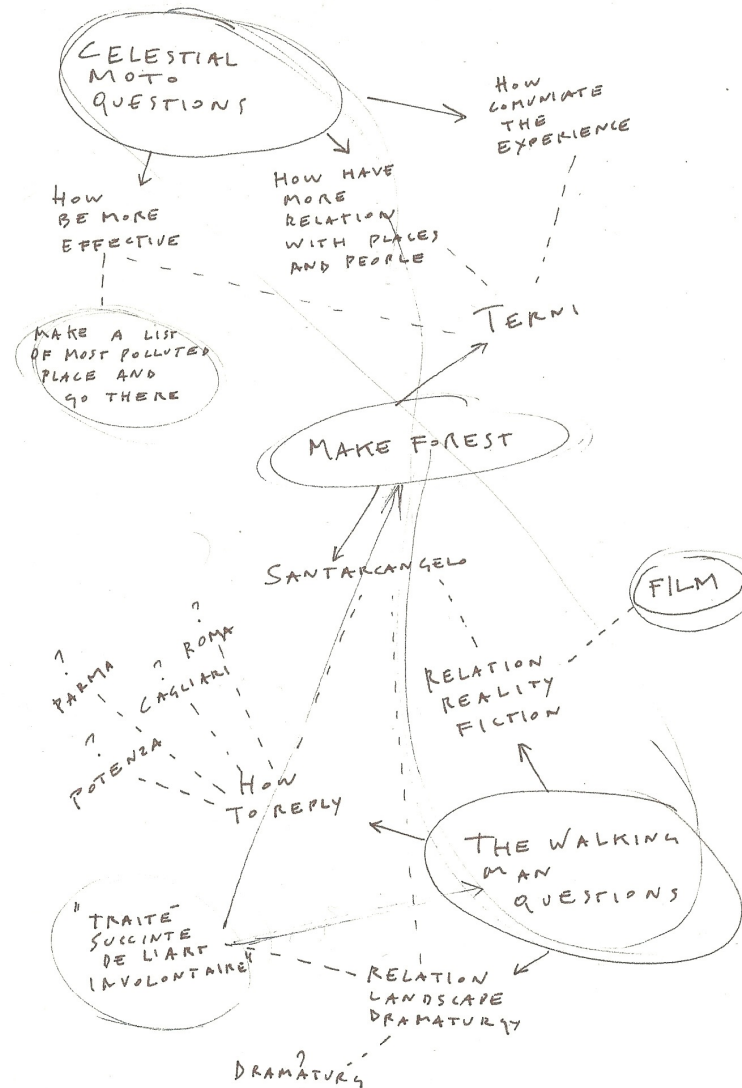 CELESTIAL
MOTO
QUESTIONS
HOW
COMUNIATE
THE
EXPERIENCE
HOW HAVE
MORE
RELATION
WITH PLACES
AND PEOPLE
HOW
BE MORE
EFFECTIVE
TERNI
MAKE A LIST
OF MOST POLLUTED
PLACE AND
GO THERE
MAKE FOREST
SANTARCANGELO
FILM
?
ROMA
?
PARMA
?
CAGLIARI
?
POTENZA
RELATION
REALITY
FICTION
HOW
TO REPLY
THE WALKING
MAN
QUESTIONS
"TRAITÉ
SUCCINTE
DE L'ART
INVOLONTAIRE"
RELATION
LANDSCAPE
DRAMATURGY
?
DRAMATURG